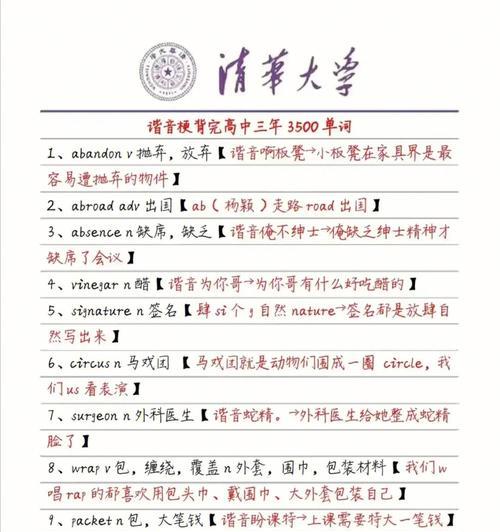 清华大学
谐音梗背完高中三年3500单词
1、abandon v 抛弃，放弃【谐音啊板凳→小板凳在家具界是最
容易遭抛弃的物件】
2、abroad adv 出国【ab（杨颖）走路road出国】
3、absence n 缺席，缺乏【谐音俺不绅士→俺缺乏绅士精神才
缺席了会议】
4、vinegar n 醋【谐音为你哥→为你哥有什么好吃醋的】
5、signature n 签名【肆si个g自然nature→签名都是放肆自
然写出来】
6、circus n 马戏团 【马戏团就是动物们围成一圈 circle，我
们us看表演】
7、surgeon n 外科医生【谐音蛇精。→外科医生给她整成蛇精
脸了】
8、wrap v 包，缠绕，覆盖 n 外套，围巾，包装材料【我们w
唱rap的都喜欢用包头巾、戴围巾、大外套包装自己】
9、packet n 包，大笔钱【谐音盼课特→上课需要特大一笔钱】